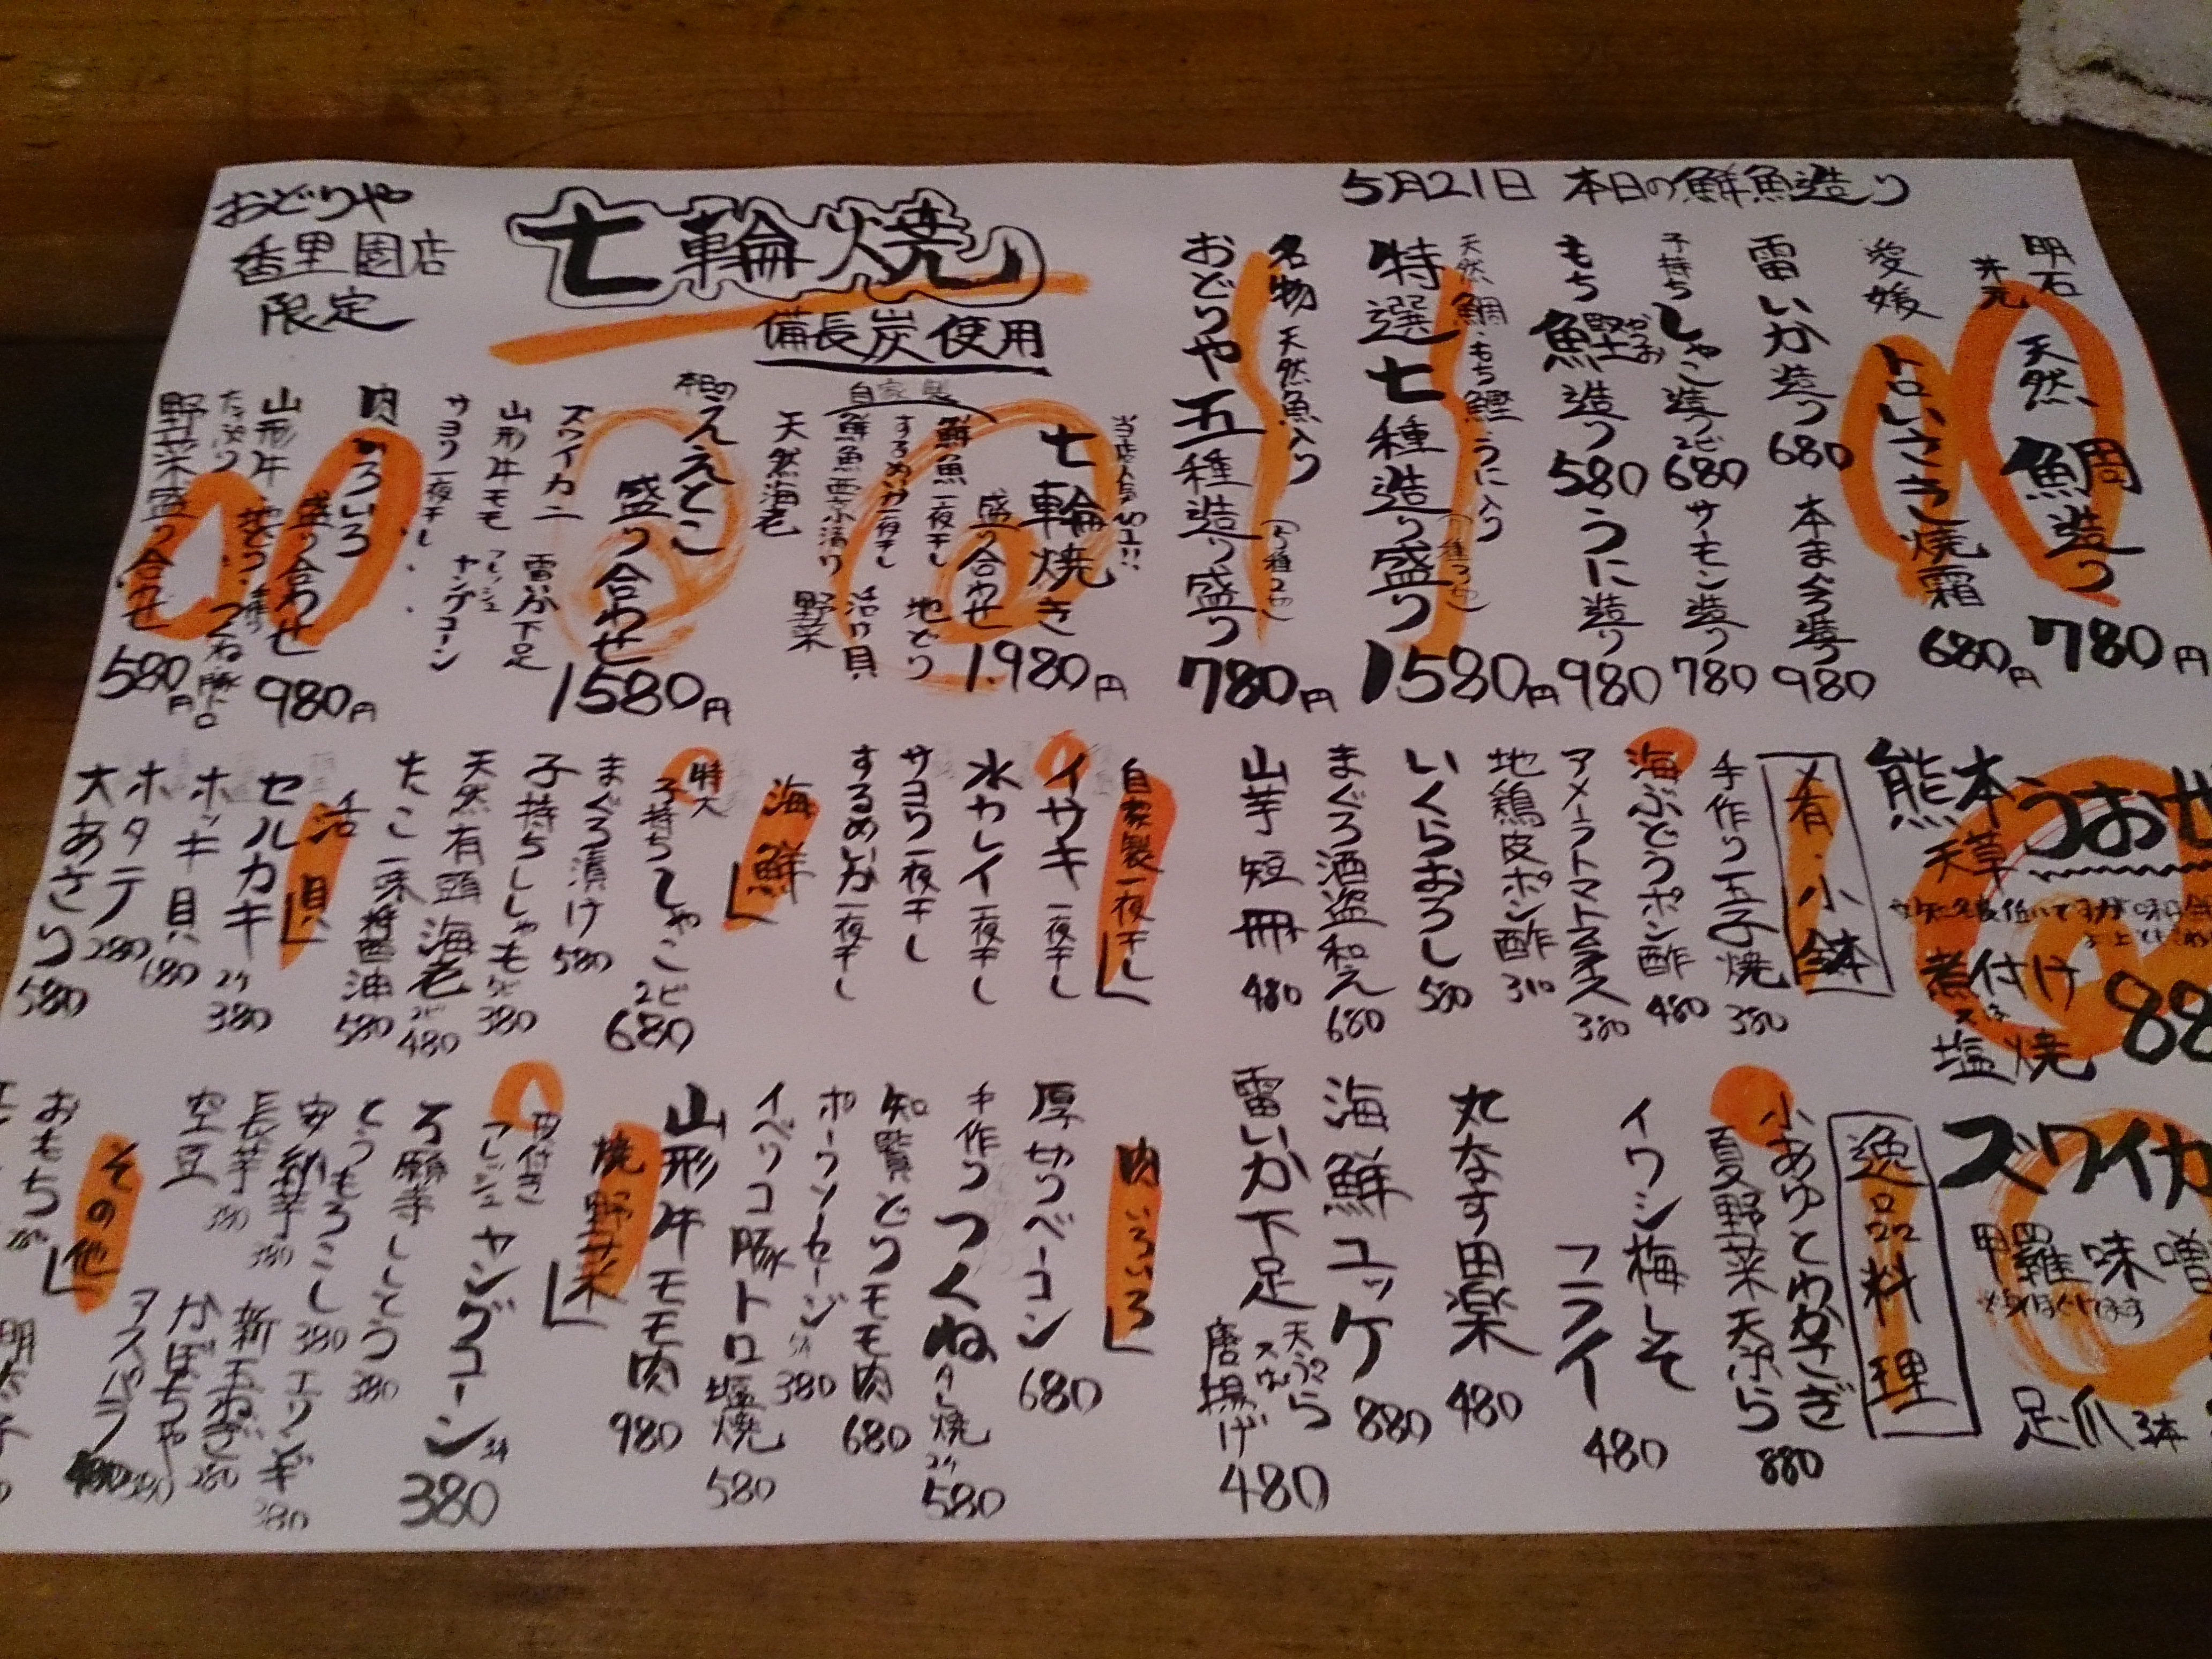 5月21日 本日の鮮魚造り
明石
天然鯛造り 780円
愛媛
トロいさき焼霜 680円
雷いか造り 680
本まぐろ造り 980
子持ちしゃこ造り 2ヒ 680
サーモン造り 780
もち鰹造り 580
かつお
うに造り 980
天然鯛・もち鰹・うに入り
特選七種造り盛り 1580円
名物 天然魚入り
おどりや五種造り盛り 780円
おどりや
香里園店
限定
七輪焼
備長炭使用
当店人気No.1!!
七輪焼き
盛り合わせ 1.980円
自家製
鮮魚一夜干し
するめいか一夜干し
地どり
活け貝
天然海老
野菜
本日の
ええとこ
盛り合わせ 1580円
ズワイカニ
雷いか下足
山形牛モモ
フレッシュ
ヤングコーン
サヨリ一夜干し
肉いろいろ
盛り合わせ 980円
山形牛
つくね 豚トロ
たっぷり
野菜盛り合わせ 580円
熊本
天草
うおぜ
煮付け
又は
塩焼
88
〆肴・小鉢
手作り玉子焼 380
海ぶどうポン酢 480
アメーラトマトスライス 380
地鶏皮ポン酢 310
いくらおろし 580
まぐろ酒盗和え 680
山芋短冊 480
自家製一夜干し
イサキ一夜干し
水カレイ一夜干し
サヨリ一夜干し
するめいか一夜干し
海鮮
特大
子持ちしゃこ 2ヒ 680
まぐろ漬け 580
子持ちししゃも 380
天然有頭海老 480
たこ一味醤油 580
活貝
セルカキ 2ケ 380
ホッキ貝 680
ホタテ 280
大あさり 580
ズワイカ
甲羅味噌
足・爪 3本
逸品料理
小あゆとわかさぎ
夏野菜天ぷら 880
イワシ梅しそ
フライ 480
丸なす田楽 480
海鮮ユッケ 880
雷いか下足
天ぷら
又は
唐揚げ 480
肉いろいろ
厚切りベーコン 680
手作りつくね
タレ焼 2ケ 580
知覧どりモモ肉 680
ポークソーセージ 380
イベリコ豚トロ塩焼 580
山形牛モモ肉 980
焼野菜
皮付き
フレッシュヤングコーン 380
万願寺ししとう 380
とうもろこし 380
安納芋 380
エリンギ 380
長芋 380
新玉ねぎ 280
空豆
かぼちゃ
アスパラ 480
その他
おもち